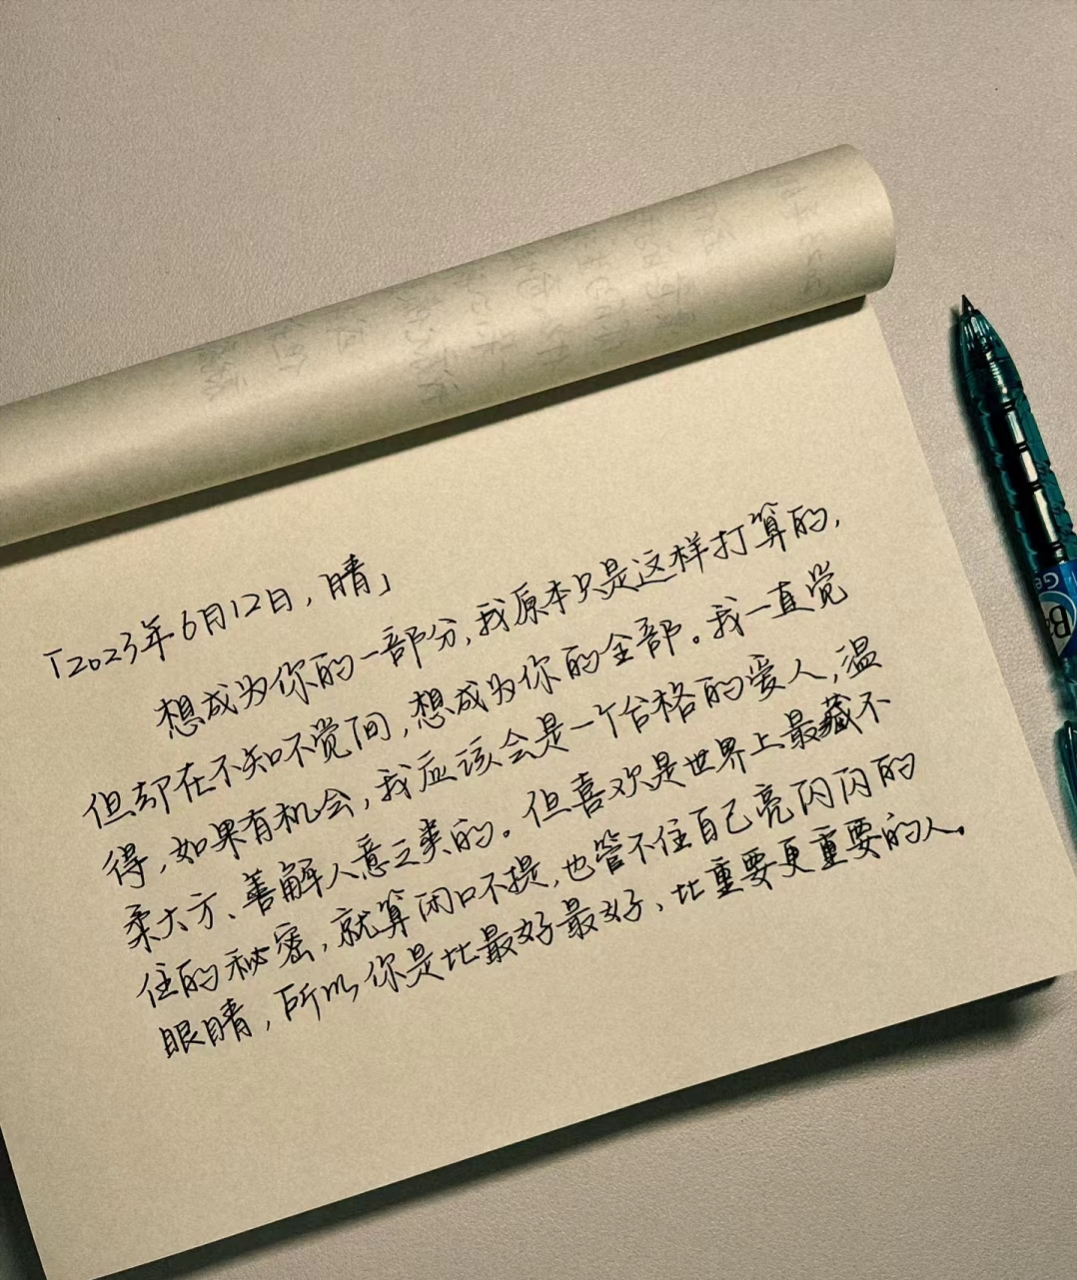 「2023年6月12日，晴」
想成为你的一部分，我原本只是这样打算的，
但却在不知不觉间，想成为你的全部。我一直觉
得，如果有机会，我应该会是一个合格的爱人，温
柔大方、善解人意之类的。但喜欢是世界上最藏不
住的秘密，就算闭口不提，也管不住自己亮闪闪的
眼睛，所以你是比最好最好、比重要更重要的人。